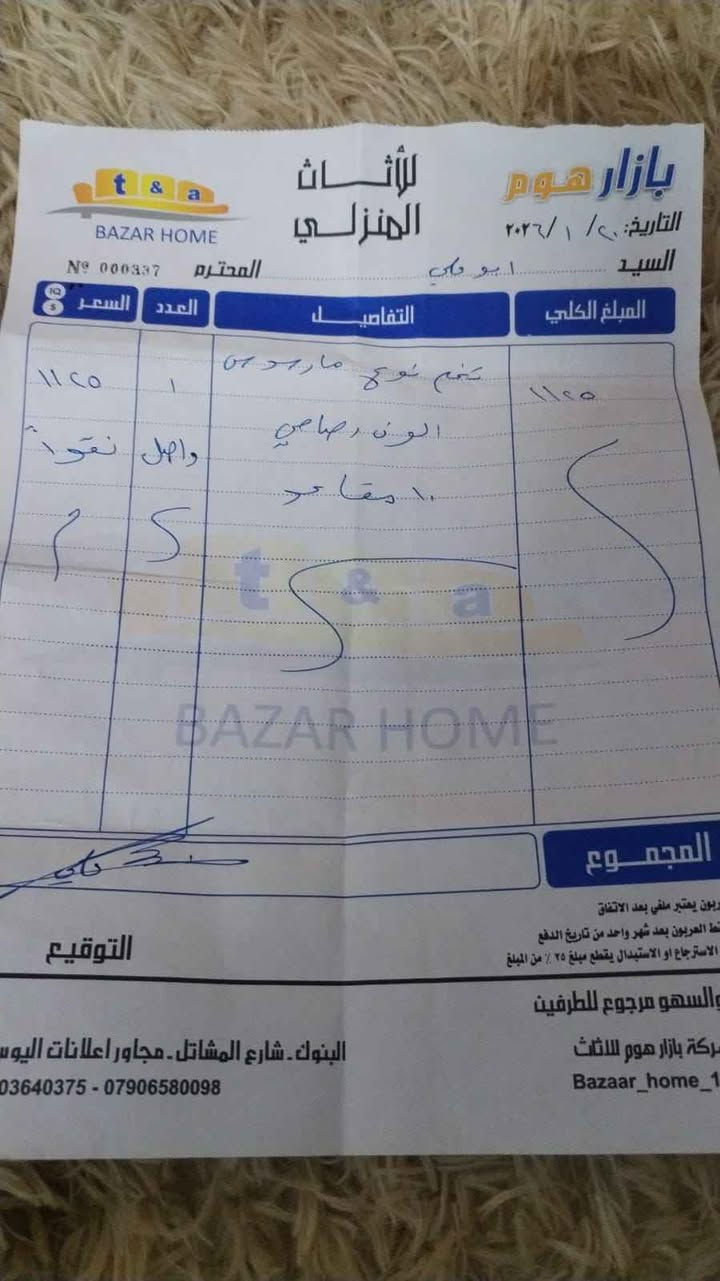 بازار هوم
للأثاث
المنزلي
t & a
BAZAR HOME
التاريخ: ٢٠ / ١ / ٢٠٢٦
السيد ابو علي المحترم
Nº 000337
المبلغ الكلي التفاصيل العدد السعر IQ $
١١٢٥ تخم نوع ١ ١١٢٥
الون رصاصي واصل نقداً
١٠ مقاعد
t & a
BAZAR HOME
المجموع
ربون يعتبر ملغي بعد الاتفاق
قط العربون بعد شهر واحد من تاريخ الدفع
الاسترجاع او الاستبدال يقطع مبلغ ٢٥ ٪ من المبلغ
التوقيع
والسهو مرجوع للطرفين
ركة بازار هوم للاثاث
البنوك - شارع المشاتل - مجاور اعلانات اليوس
Bazaar_home_1
03640375 - 07906580098